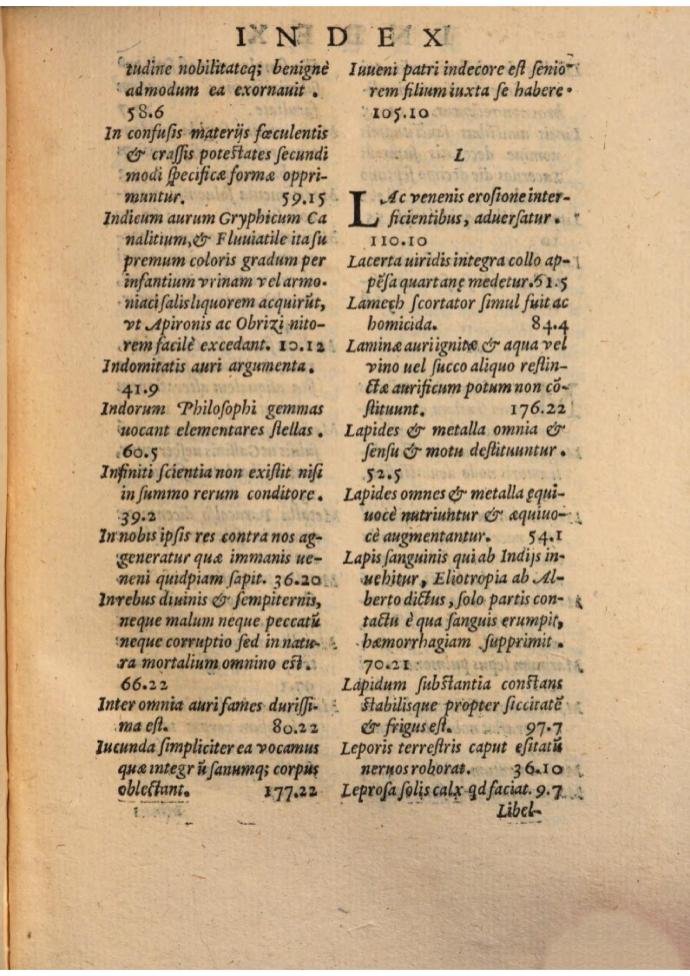 INDEX
tudine nobilitateq; benignè
admodum ea exornauit.
58.6
In confusis materijs fœculentis
& craſſis poteſtates ſecundi
modi ſpecificæ formæ oppri-
muntur. 59.15
Indicum aurum Gryphicum Ca
nalitium, & Fluuiatile ita ſu
premum coloris gradum per
infantium vrinam vel armo-
niaci ſalis liquorem acquirūt,
vt Apironis ac Obrizi nito-
rem facilè excedant. 10.12
Indomitatis auri argumenta.
41.9
Indorum Philoſophi gemmas
uocant elementares ſtellas.
60.5
Infiniti ſcientia non exiſtit niſi
in ſummo rerum conditore.
39.2
In nobis ipſis res contra nos ag-
generatur quæ immanis ue-
neni quidpiam ſapit. 36.20
In rebus diuinis & ſempiternis,
neque malum neque peccatū
neque corruptio ſed in natu-
ra mortalium omnino eſt.
66.22
Inter omnia auri fames duriſſi-
ma eſt. 80.22
Iucunda ſimpliciter ea vocamus
quæ integrū ſanumq; corpus
oblectant. 177.22
Iuueni patri indecore eſt ſenio-
rem filium iuxta ſe habere.
105.10
L
LAc venenis eroſione inter-
ficientibus, aduerſatur.
110.10
Lacerta uiridis integra collo ap-
pẽſa quartanę medetur. 61.5
Lamech ſcortator ſimul fuit ac
homicida. 84.4
Laminæ auri ignitæ & aqua vel
vino uel ſucco aliquo reſtin-
ctæ aurificum potum non cō-
ſtituunt. 176.22
Lapides & metalla omnia &
ſenſu & motu deſtituuntur.
52.5
Lapides omnes & metalla ęqui-
uocè nutriuntur & æquiuo-
cè augmentantur. 54.1
Lapis ſanguinis qui ab Indijs in-
uehitur, Eliotropia ab Al-
berto dictus, ſolo partis con-
tactu è qua ſanguis erumpit,
hæmorrhagiam ſupprimit.
70.21
Lapidum ſubſtantia conſtans
ſtabilisque propter ſiccitatē
& frigus eſt. 97.7
Leporis terreſtris caput eſitatū
neruos roborat. 36.10
Leproſa ſolis calx qd faciat. 9.7
Libel-